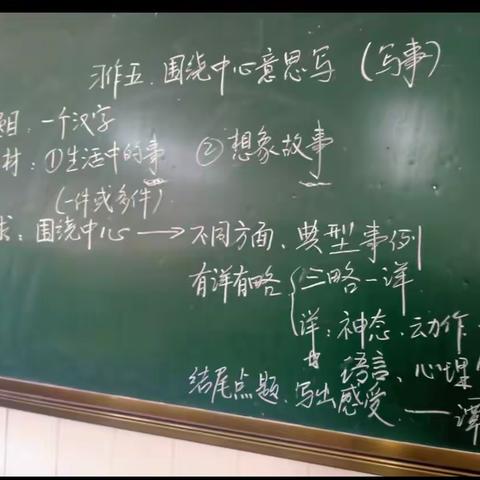 习作五.围绕中心意思写(写事)
目:一个汉字
材:①生活中的事 ②想象故事
(一件或多件)
求:围绕中心→不同方面、典型事例
有详有略{三略一详
详:神态、动作
语言、心理
结尾点题.写出感受.——